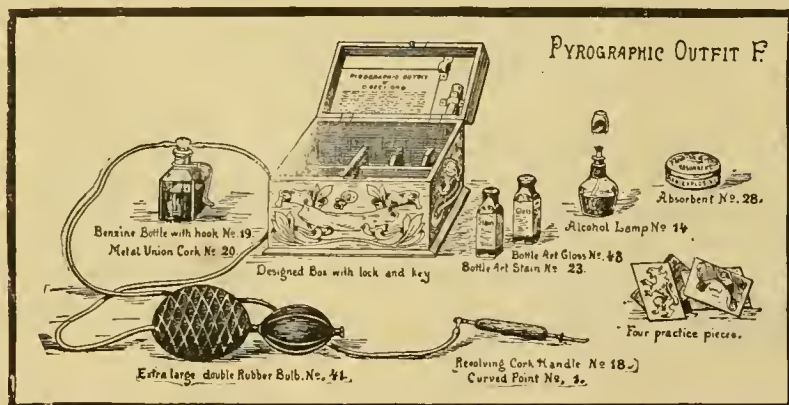 PYROGRAPHIC OUTFIT F.
PYROGRAPHIC OUTFIT
DIRECTIONS
Benzine Bottle with hook No. 19
Metal Union Cork No. 20.
Designed Box with lock and key
Stain
Gloss
Bottle Art Gloss No. 48
Bottle Art Stain No. 23.
Alcohol Lamp No 14
ABSORBENT
Absorbent No. 28.
Four practice pieces.
Extra large double Rubber Bulb. No. 41.
Revolving Cork Handle No 18.
Curved Point No. 1.